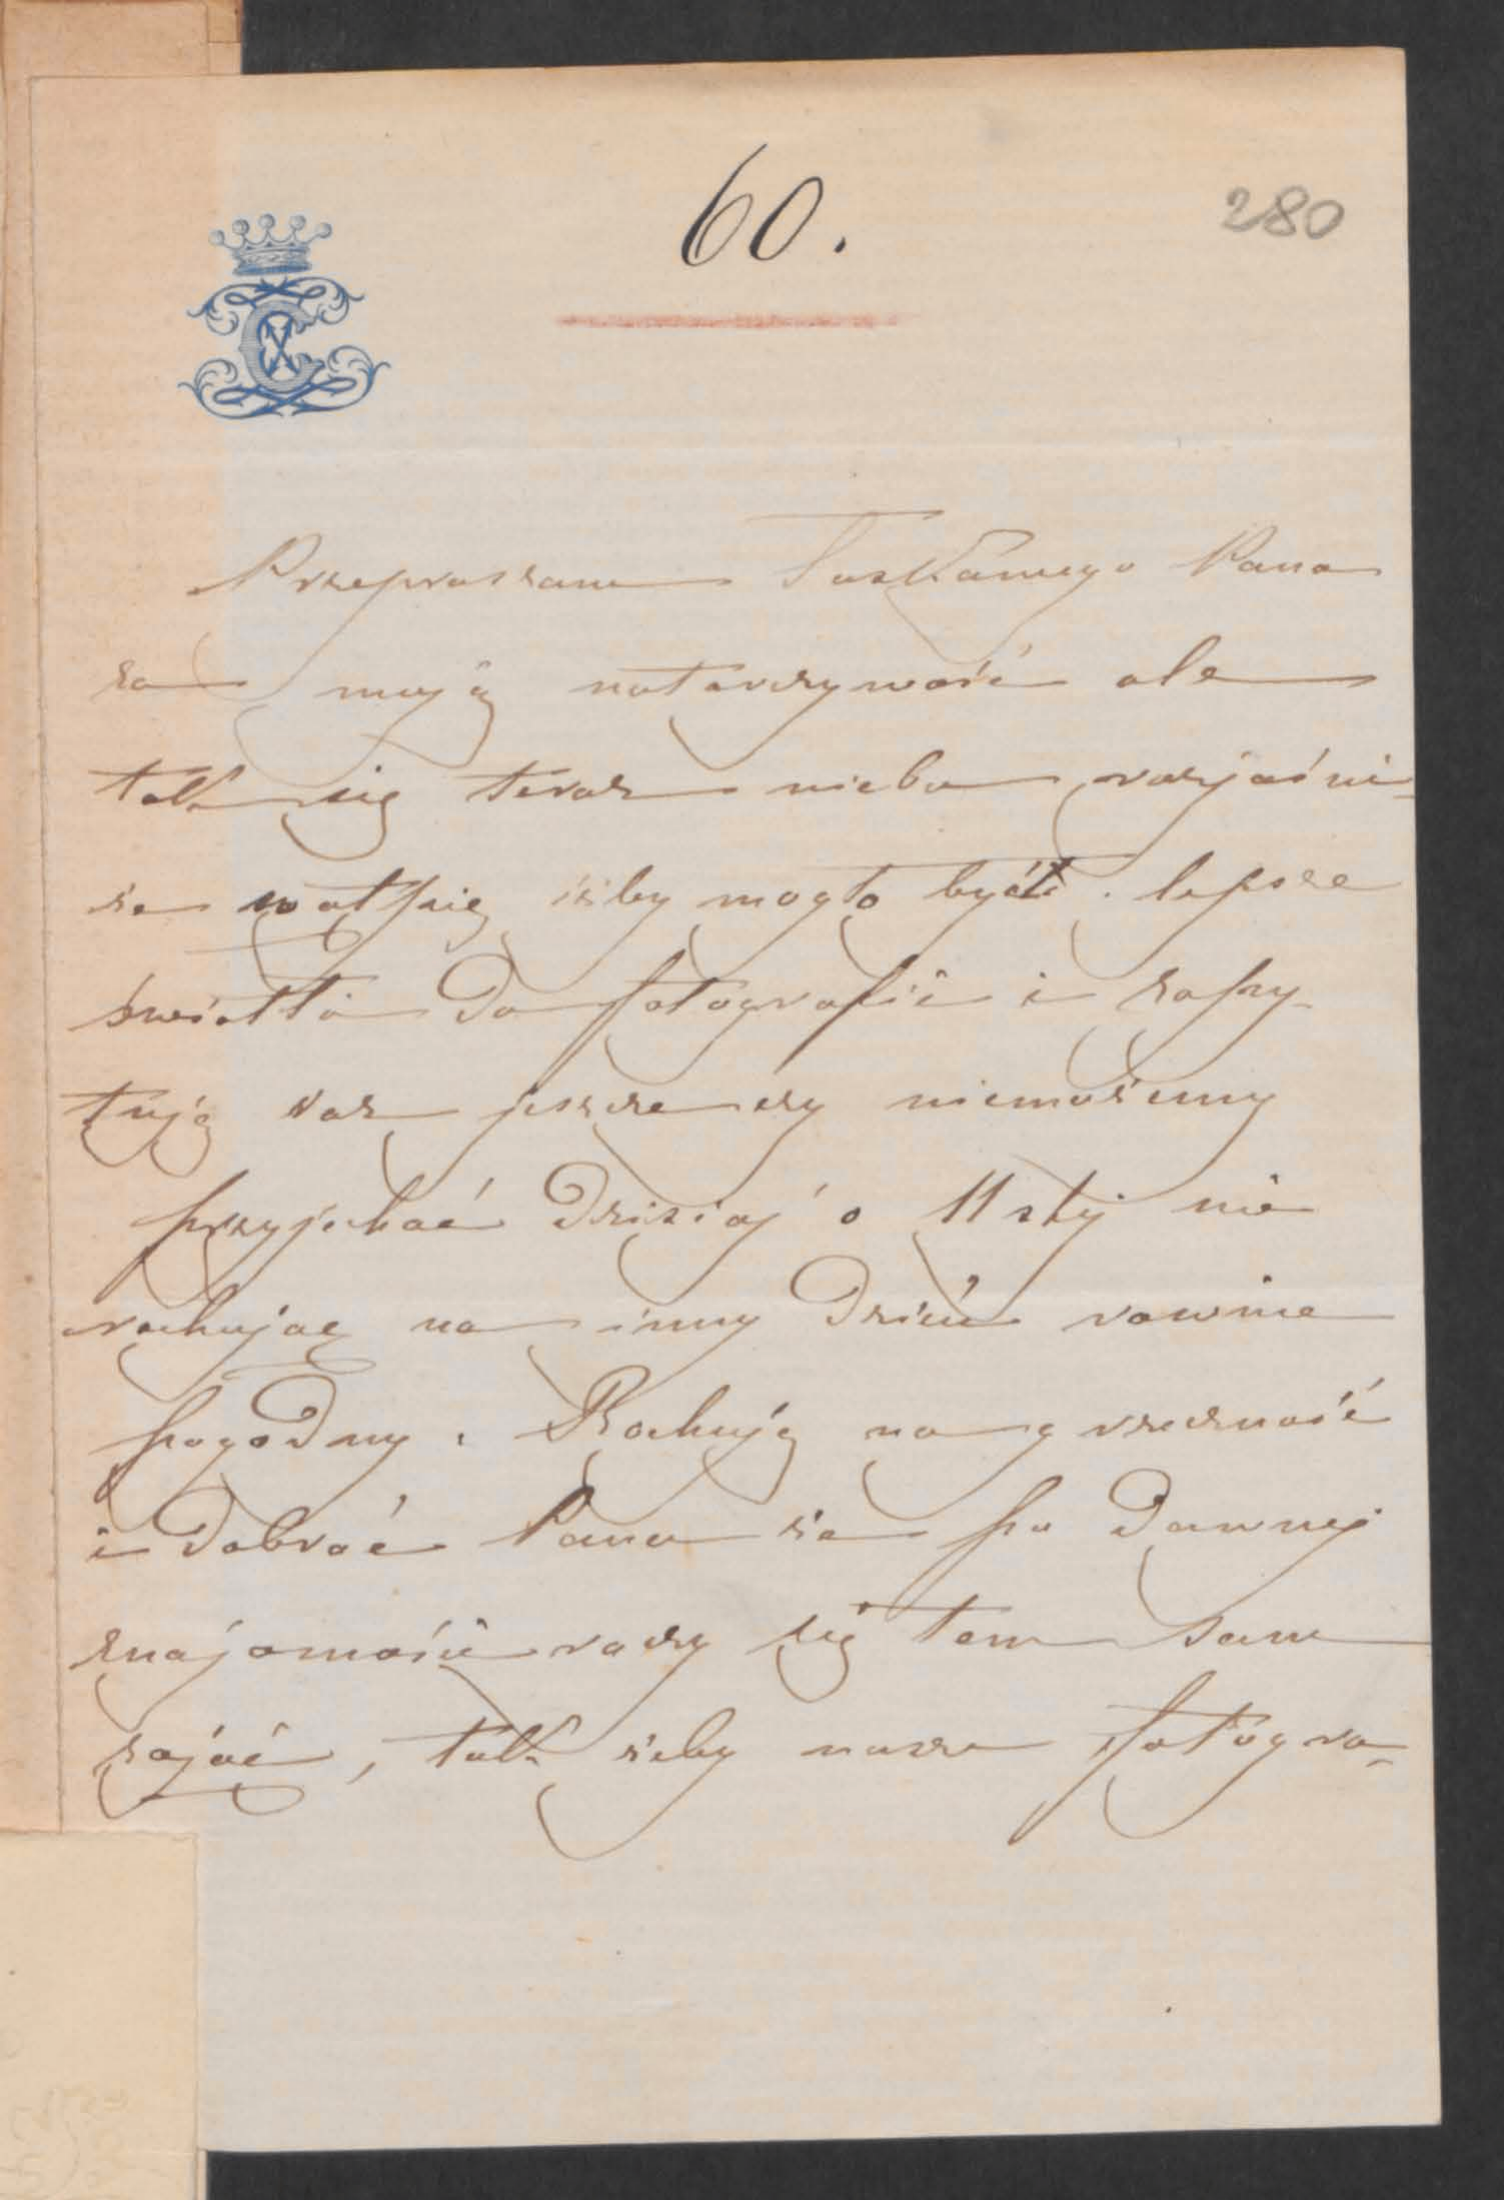 60.
280
Przepraszam Łaskawego Pana
za moją natarczywość ale
tak się teraz niebo rozjaśni-
że wątpię iżby mogło być lepsze
światło do fotografii i zapy-
tuję raz jeszcze czy niemożemy
przyjechać dzisiaj o 11stej nie
rachując na inny dzień rownie
pogodny. Rachuję na grzeczność
i dobroć Pana że po dawnej
znajomości raczy się tem sam
zająć, tak żeby nasze fotogra-